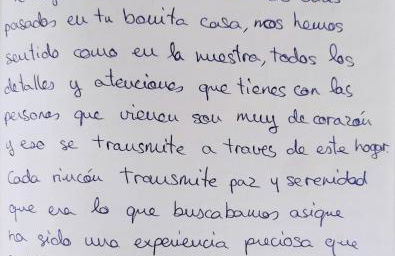 pasados en tu bonita casa, nos hemos
sentido como en la nuestra, todos los
detalles y atenciones que tienes con las
personas que vienen son muy de corazón
y eso se transmite a traves de este hogar.
Cada rincón transmite paz y serenidad
que era lo que buscabamos asique
ha sido una experiencia preciosa que